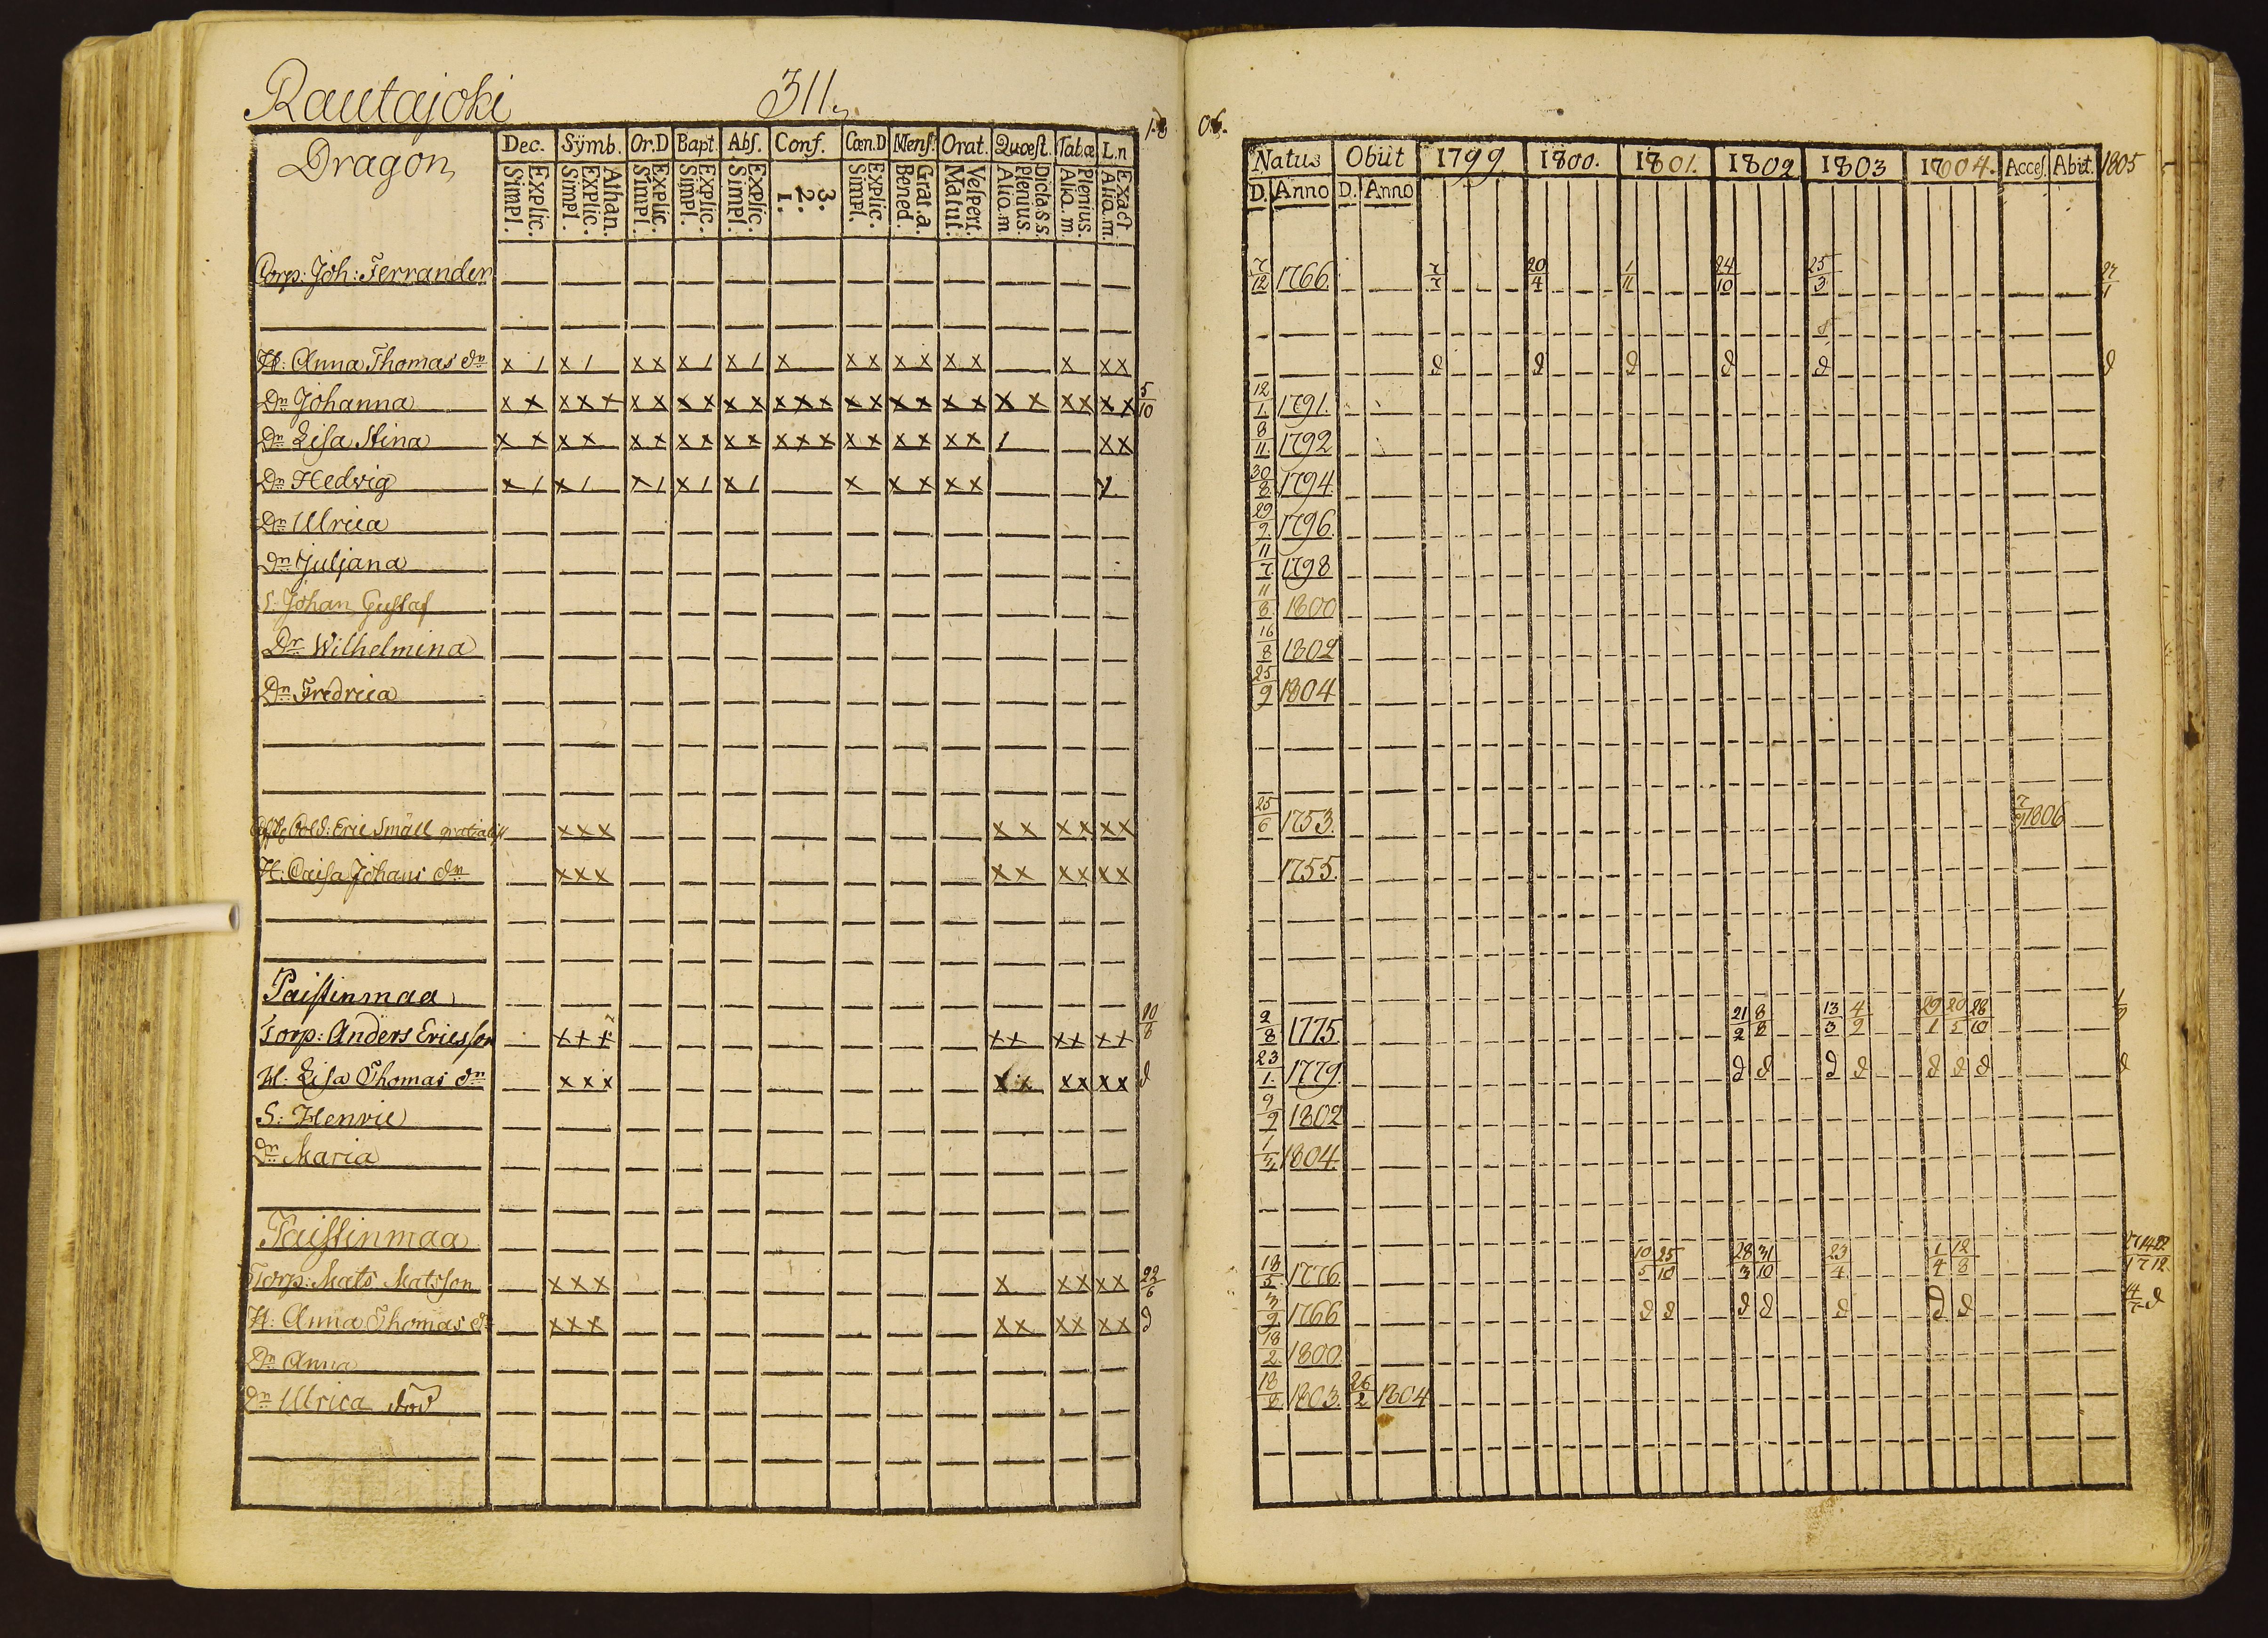 Rautajoki 311.
Dragon
Dec. Sÿmb. Or.D Bapt. Abs. Conf. Cœn.D Mens. Orat. Quæst. Tabæ L.n
Explic. Simpl. Athan. Explic. Simpl. Explic. Simpl. Explic. Simpl. Explic. Simpl. 3. 2. 1. Explic. Simpl. Grat.a. Bened. Vespert. Matut. Dicta.s.s. Plenius. Alio.m. Plenius. Alia.m. Exact. Alia.m.
Natus Obiit 1799. 1800. 1801. 1802 1803 1804. Acces. Abiit. 1805
D. Anno D. Anno
Corp: Joh: Ferrander 7/12 1766. 7/7 20/4 1/11 24/10 25/3 27/1
H: Anna Thomas dr x / x / x x x / x / x x x x x x x x x x d d d d d d
Dr Johanna x x x x x x x x x x x x x x x x x x x x x x x x x x 5/10 12/1 1791.
Dr Lisa Stina x x x x x x x x x x x x x x x x x x x / x x 8/11 1792
Dr Hedvig x / x / x / x / x / x x x x x 30/8 1794
Dr Ulrica 29/9 1796.
Dr Juljana 11/7 1798
S. Johan Gustaf 11/8 1800
Dr Wilhelmina 16/8 1802
Dr Fredrica 25/9 1804
Sold: Eric Smäll gratialist x x x x x x x x x 25/6 1753. 1806
H. Caisa Johans dr x x x x x x x x x 1755.
Paistinmaa
Torp: Anders Ericsson x x x x x x x x x 10/8 2/8 1775 21/2 8/8 13/3 4/9 29/1 20/5 28/10
H: Lisa Thomas dr x x x x x x x x x d 23/1 1779. d d d d d d d d
S: Henric 9/9 1802
Dr Maria 1804.
Paistinmaa
Torp: Mats Matsson x x x x x x x x 22/6 18/5 1776 10/5 25/10 28/3 31/10 23/4 1/4 12/8
H: Anna Thomas dr x x x x x x x x x d 3/9 1766 d d d d d d d d
Dr Anna 18/2 1800
Dr Ulrica död 1803. 26/2 1804